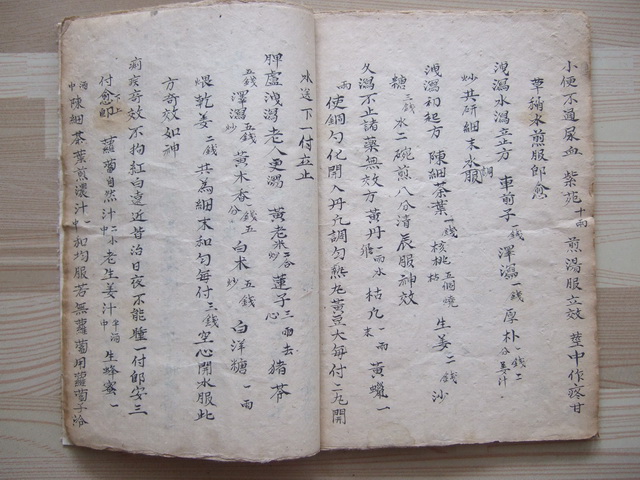 小便不通尿血 紫苑十兩 煎湯服立效 莖中作疼甘
草稍水煎服即愈
洩瀉水瀉立止方 車前子一錢 澤瀉一錢 厚朴二錢姜汁
炒 共研細末水調服
洩瀉初起方 陳細茶葉一錢 核桃五個燒枯 生姜二錢 沙
糖三錢 水二碗煎八分清晨服神效
久瀉不止諸藥無效方 黃丹一兩水 枯凡一兩末 黃蠟一
兩 使銅勺化開入丹凡調勻熱丸黃豆大每付二丸開
水送下一付立止
脾虛洩瀉老人更瀉 黃老米二合炒 蓮子三兩去心 猪苓
五錢 澤瀉五錢炒 黃木香一錢五分 白术五錢炒 白洋糖一兩
煨乾姜二錢 共為細末和勻每付三錢空心開水服此
方奇效如神
痢疾奇效不拘紅白遠近昔治日夜不能睡一付即安三
付愈 蘿蔔自然汁二小中 老生姜汁半酒中 生蜂蜜一
酒中 陳細茶葉煎濃汁一中 和均服若無蘿蔔用蘿蔔子治